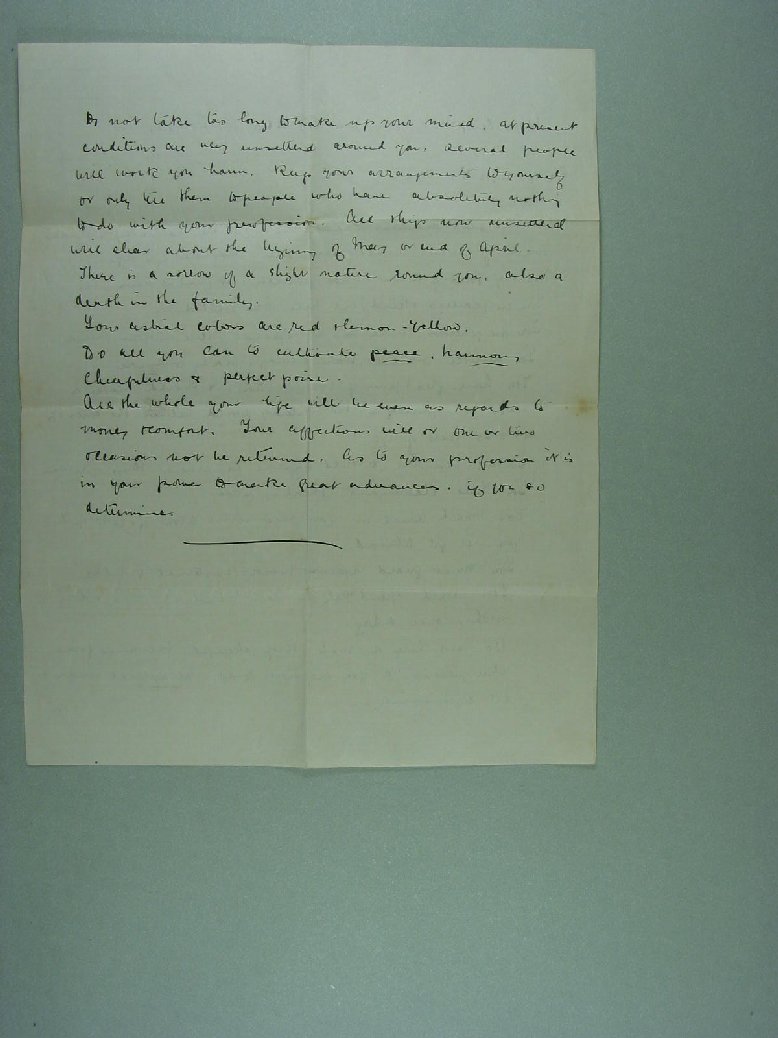 Do not take too long to make up your mind. at present
conditions are very unsettled around you. several people
will work you harm. Keep your arrangements to yourself
or only tell them to people who have absolutely nothing
to do with your profession. All things now unsettled
will clear about the beginning of May or end of April.
There is a sorrow of a slight nature round you. also a
death in the family.
Your astral colours are red & lemon-yellow.
Do all you can to cultivate peace, harmony,
Cheerfulness & perfect poise.
the whole your life will be even as regards to
money & comfort. Your affections will on one or two
occasions not be returned. As to your profession it is
in your power to make great advances. if you so
determine.